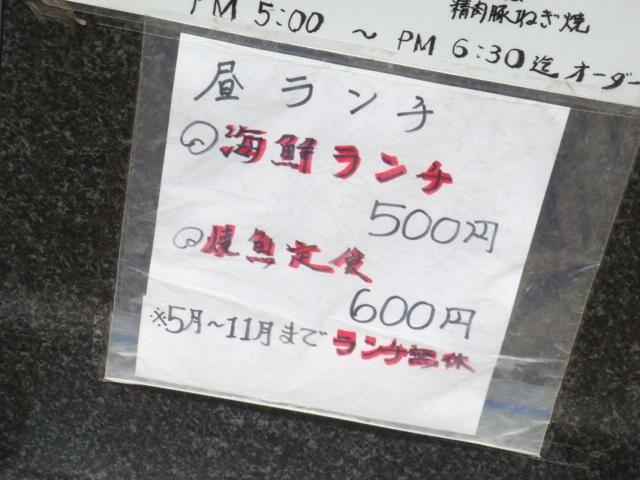 精肉豚ねぎ焼
PM 5:00 ～ PM 6:30 迄 オーダー
昼ランチ
海鮮ランチ
500円
焼魚定食
600円
※5月～11月まで ランチ無休